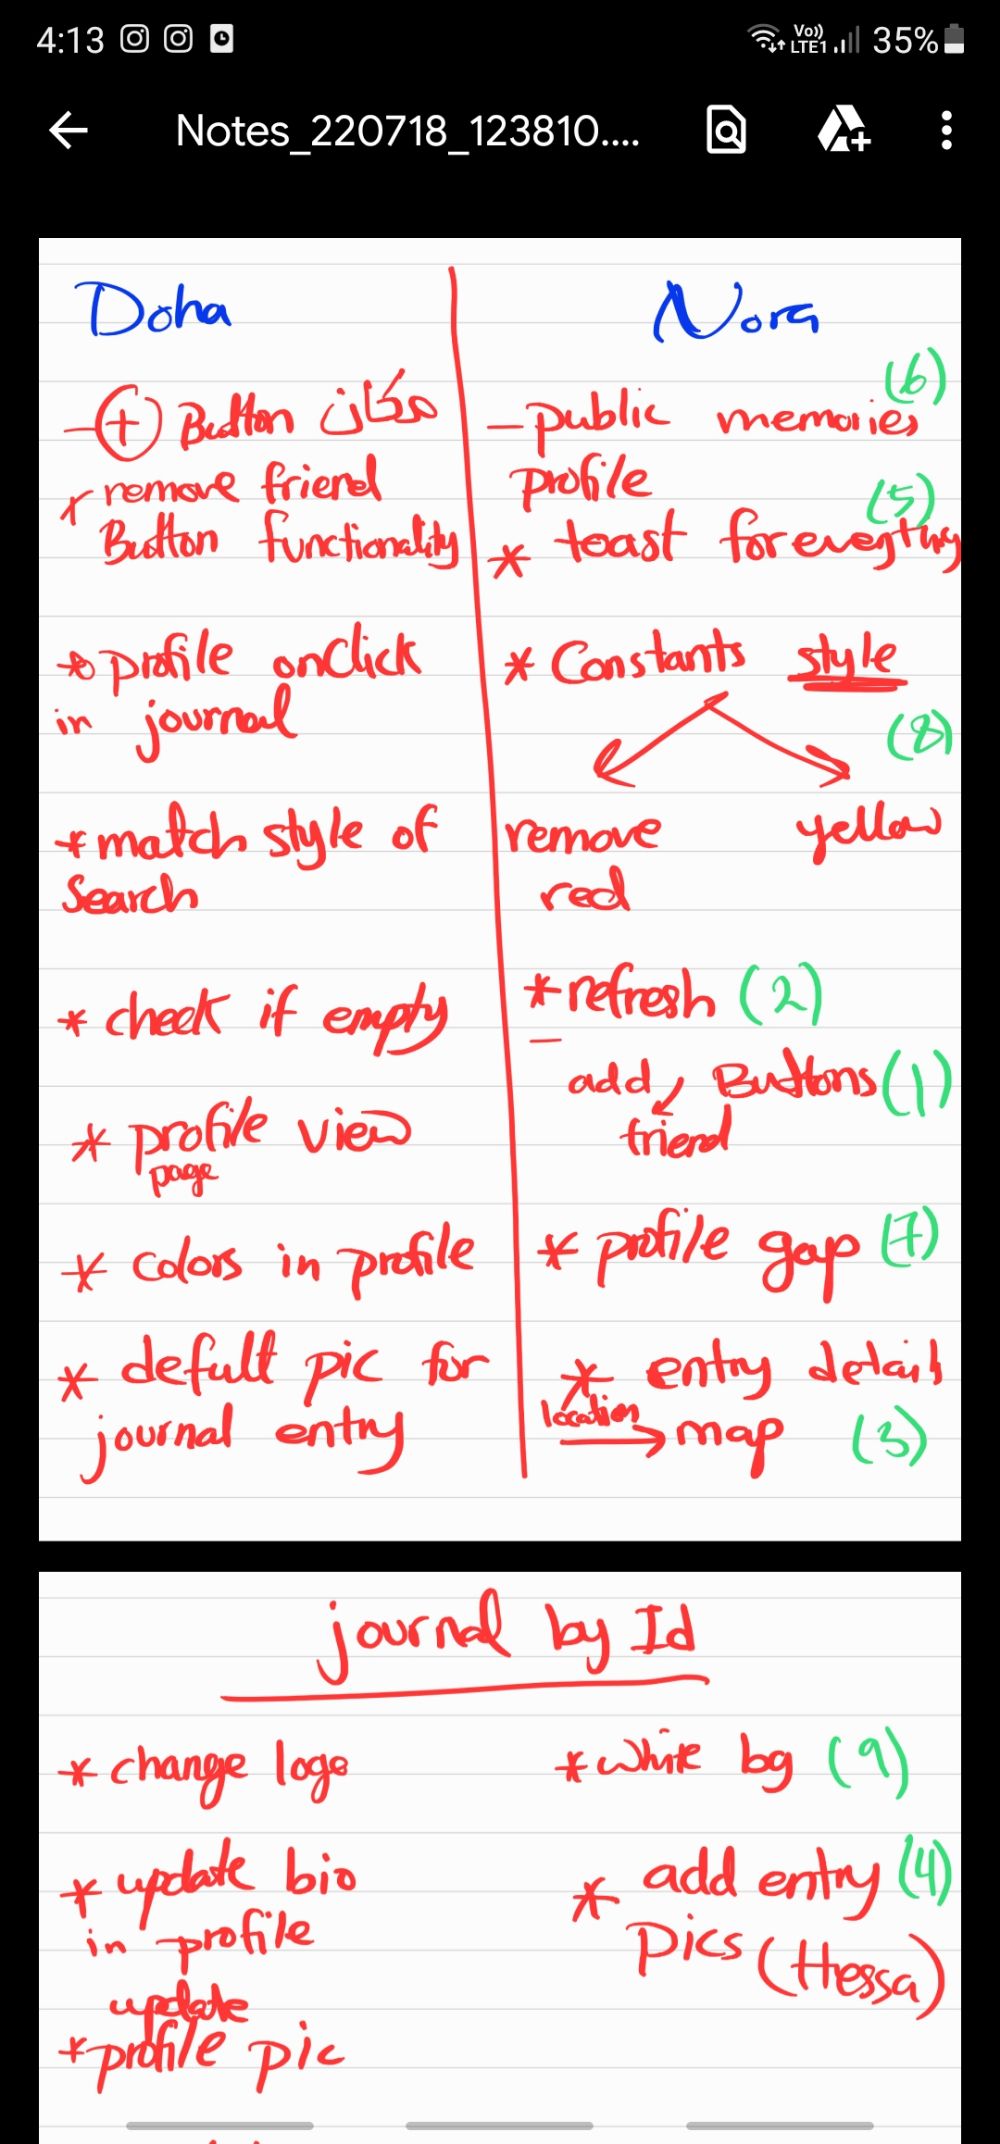 4:13
Vo)) LTE1 35%
Notes_220718_123810....
Doha
- + Button مكان
* remove friend
Button functionality
* profile onClick
in journal
* match style of
Search
* check if empty
* profile view
page
* colors in profile
* defult pic for
journal entry
Nora
- public memories (6)
profile
(5)
* toast for everything
* Constants style
(8)
remove yellow
red
* refresh (2)
-
add Buttons (1)
friend
* profile gap (7)
* entry details
location → map (3)
journal by Id
* change logo
* update bio
in profile
update
* profile pic
* white bg (9)
* add entry (4)
Pics (Hessa)